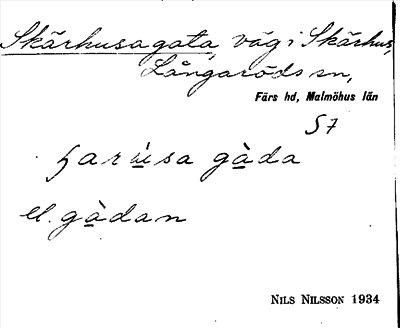 Skärhusagata, väg i Skärhus,
Långaröds sn,
Färs hd, Malmöhus län
S7
ṣarùsa gàda
el. gàdan
NILS NILSSON 1934